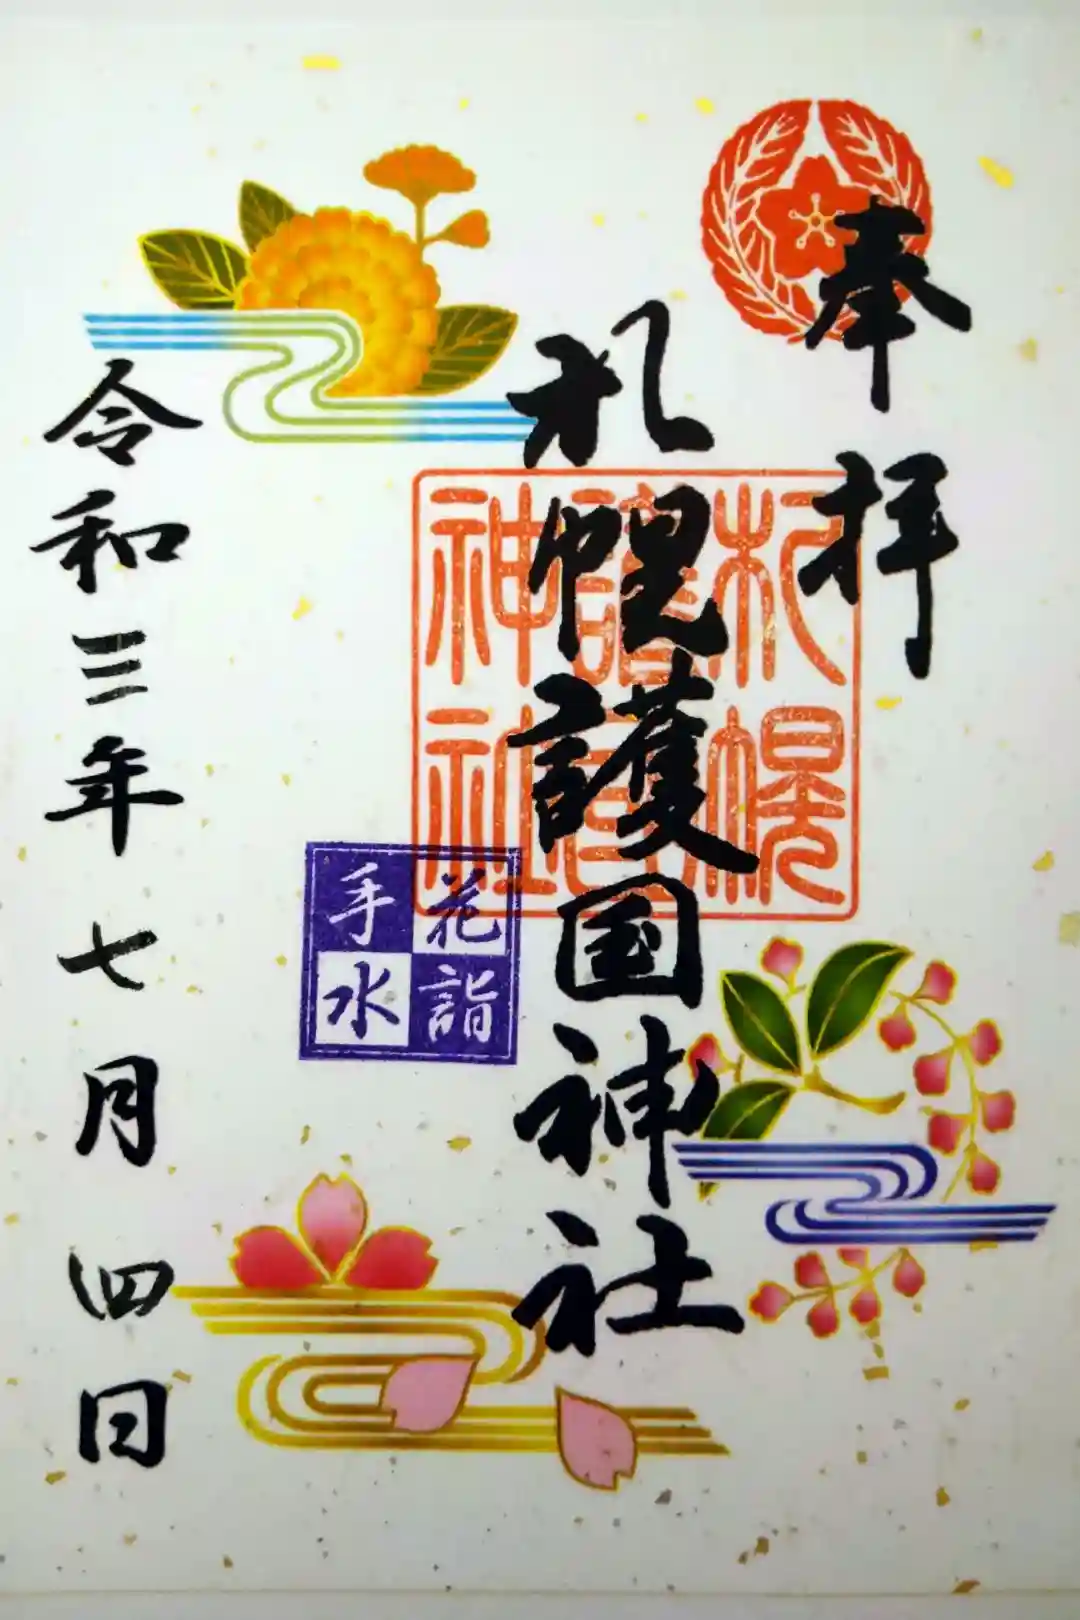 奉拝
札幌護国神社
札幌
護国
神社
花詣
手水
令和三年七月四日